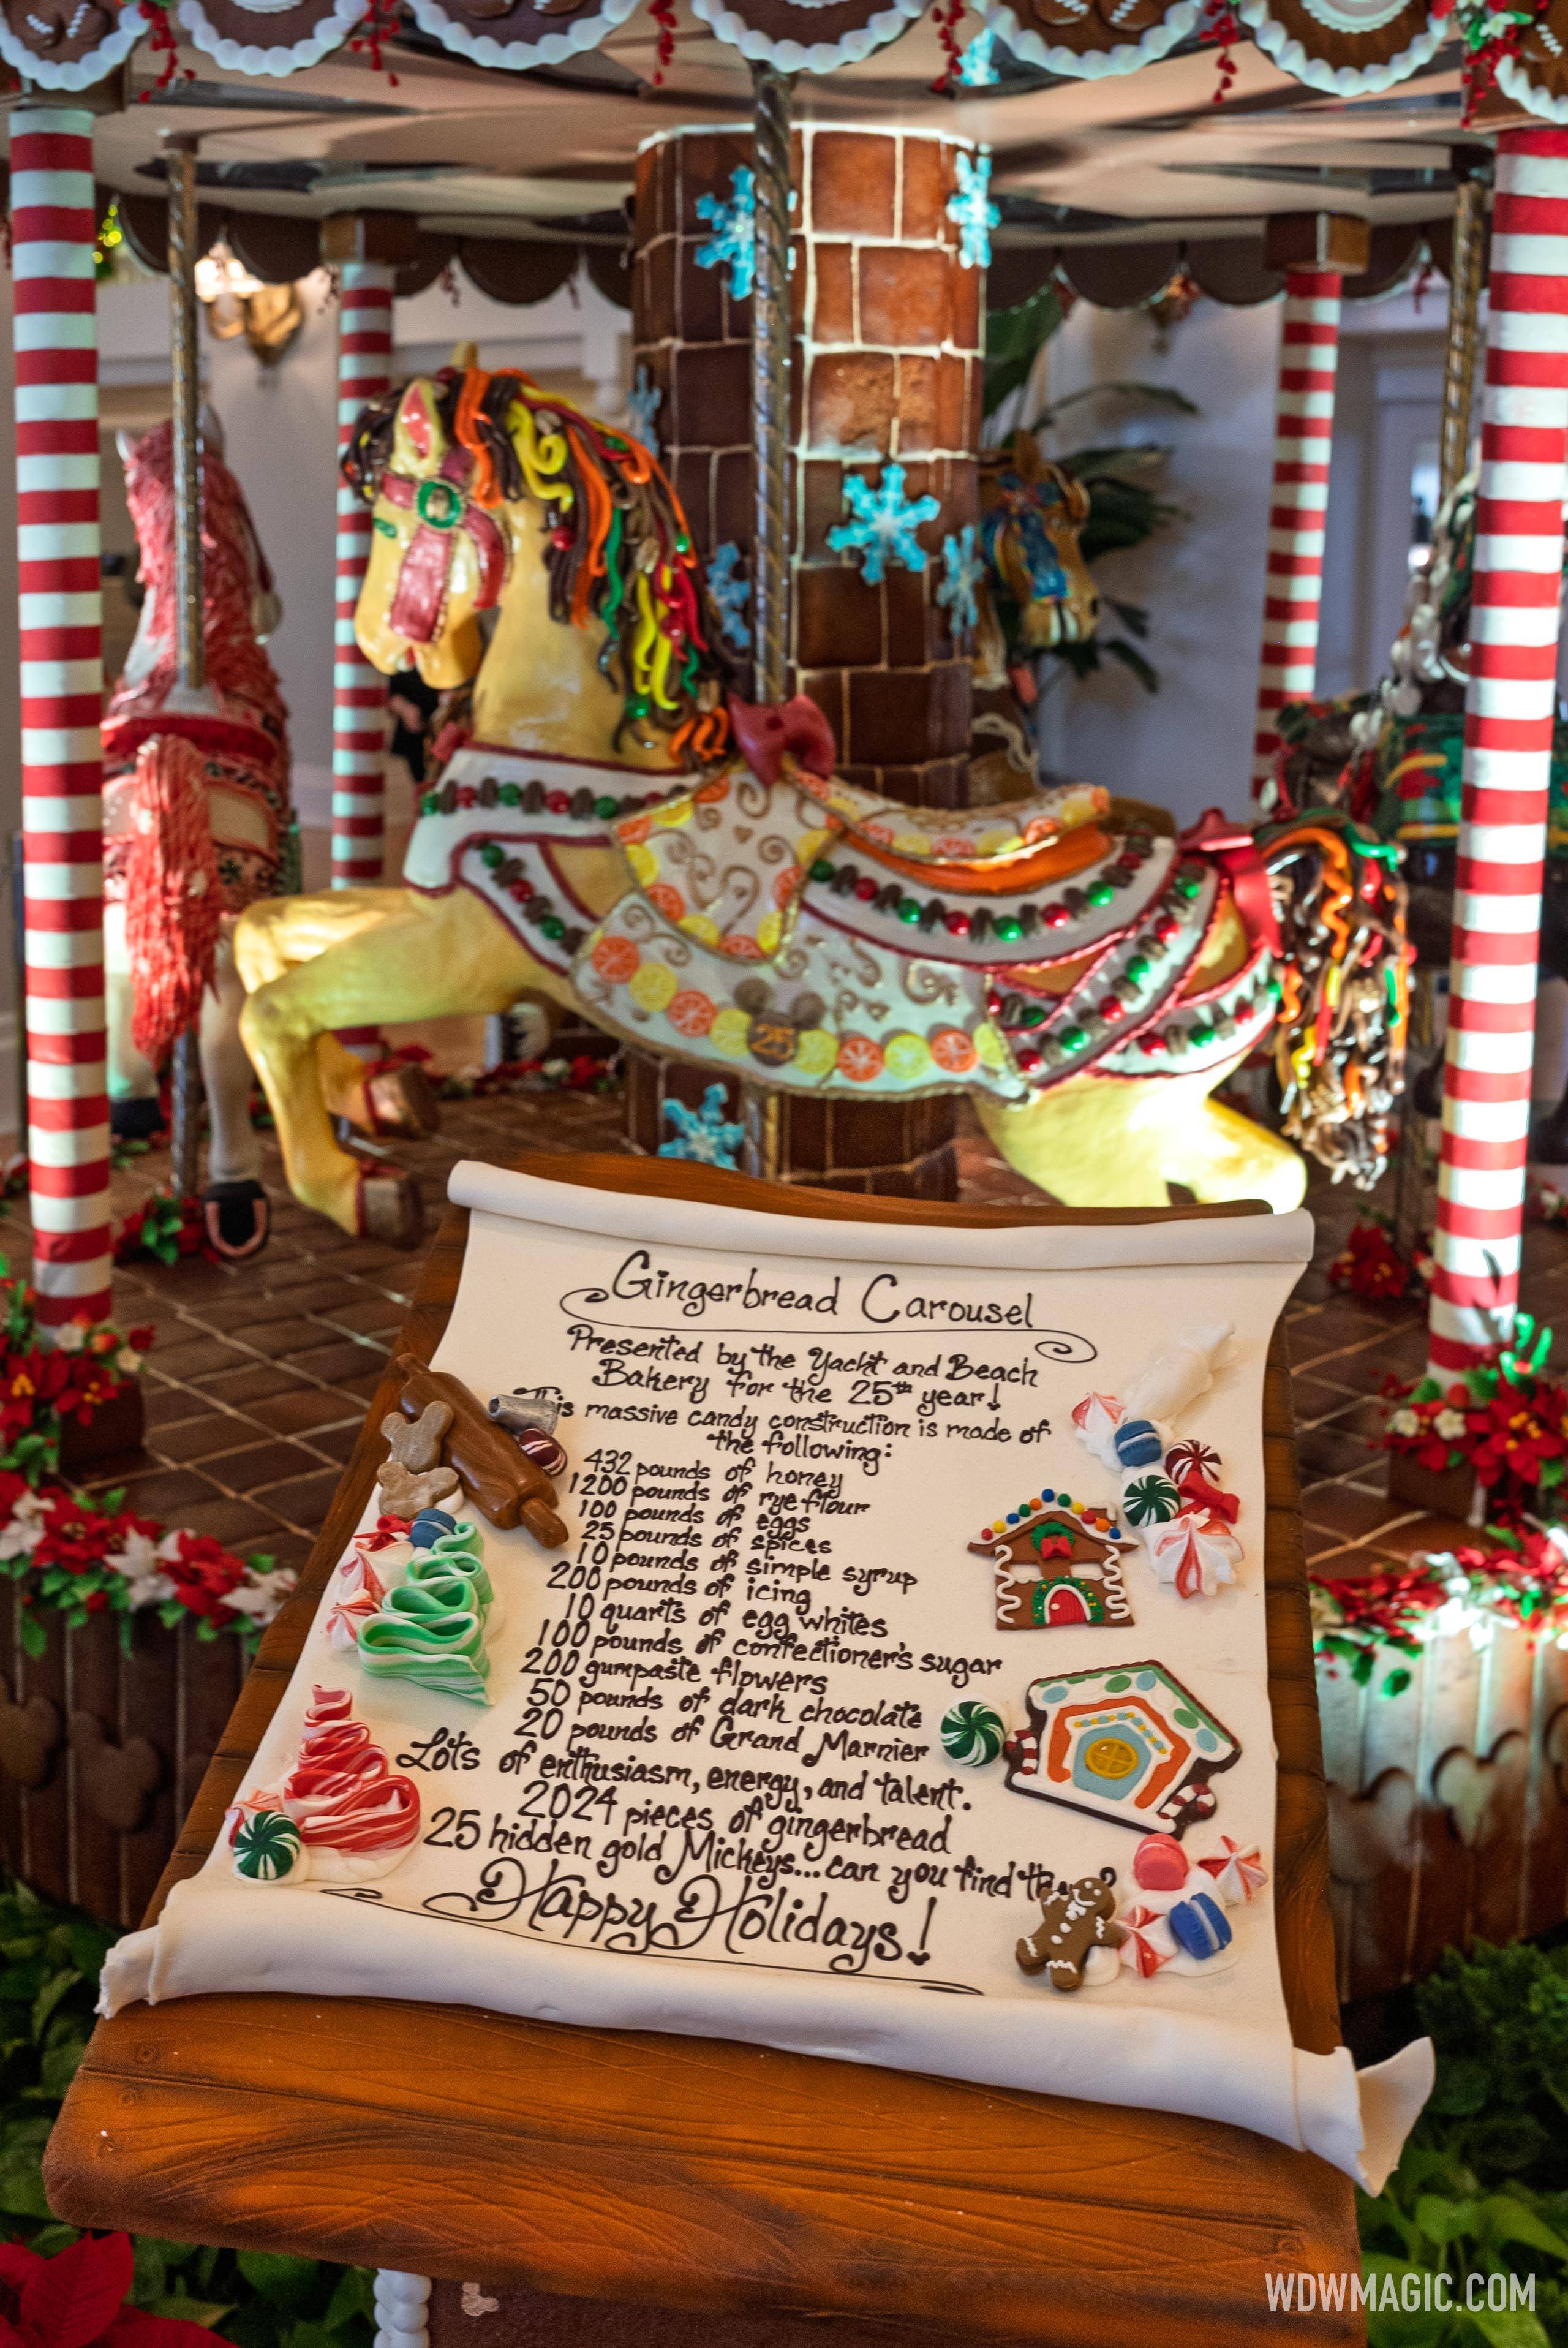 25
Gingerbread Carousel
Presented by the Yacht and Beach
Bakery for the 25th year!
This massive candy construction is made of
the following:
432 pounds of honey
1200 pounds of rye flour
100 pounds of eggs
25 pounds of spices
10 pounds of simple syrup
200 pounds of icing
10 quarts of egg whites
100 pounds of confectioner's sugar
200 gumpaste flowers
50 pounds of dark chocolate
20 pounds of Grand Marnier
Lots of enthusiasm, energy, and talent.
2024 pieces of gingerbread
25 hidden gold Mickeys...can you find them?
Happy Holidays!
WDWMAGIC.COM